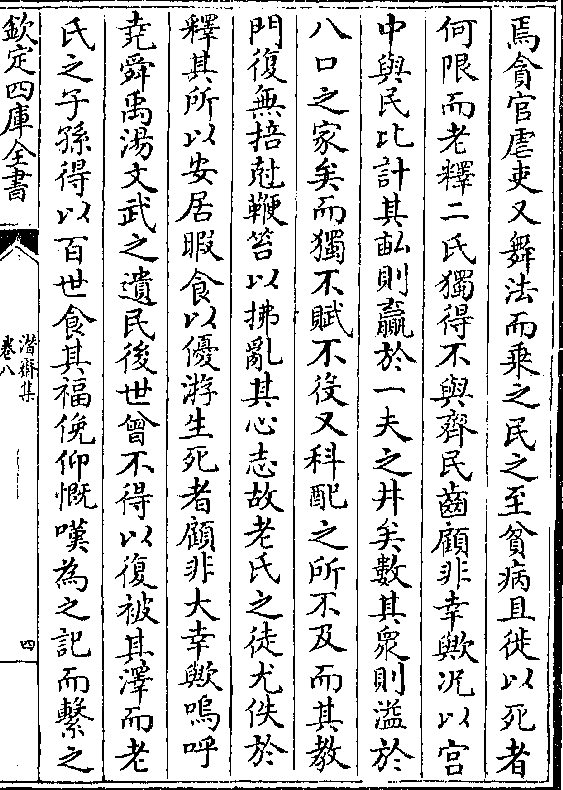 焉貪官虐吏又舞法而乘之民之至貧病且徙以死者
何限而老釋二氏獨得不與齊民齒顧非幸歟况以官
中與民比計其畝則贏於一夫之井矣數其衆則溢於
八口之家矣而獨不賦不役又科配之所不及而其教
門復無掊尅鞭笞以拂亂其心志故老氏之徒尤佚於
釋其所以安居暇食以優游生死者顧非大幸歟嗚呼
堯舜禹湯文武之遺民後世曾不得以復被其澤而老
氏之子孫得以百世食其福俛仰慨嘆為之記而繫之
欽定四庫全書
潛齋集
卷八
四